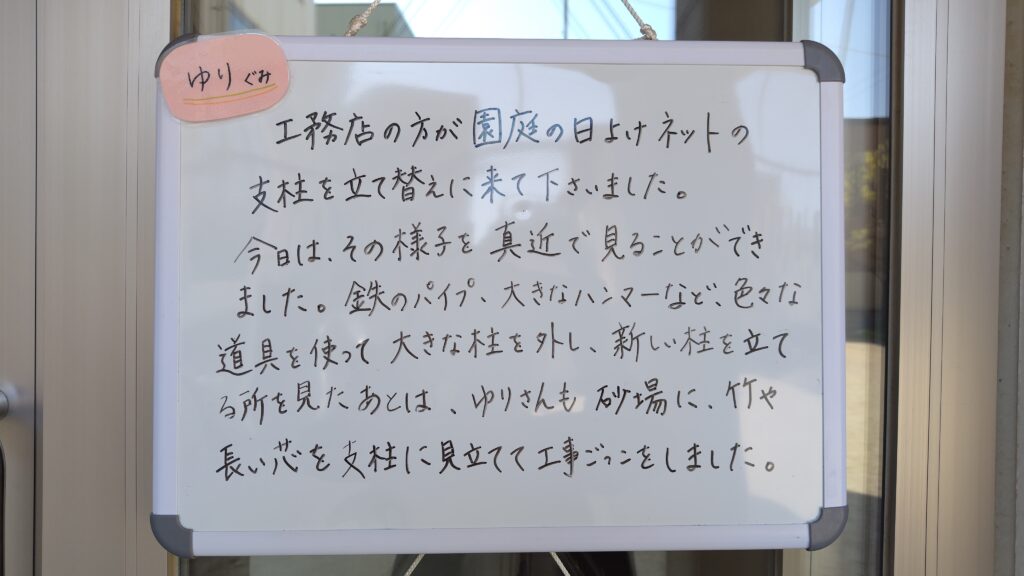 ゆりぐみ
工務店の方が園庭の日よけネットの
支柱を立て替えに来て下さいました。
今日は、その様子を真近で見ることができ
ました。鉄のパイプ、大きなハンマーなど、色々な
道具を使って大きな柱を外し、新しい柱を立て
る所を見たあとは、ゆりさんも砂場に、竹や
長い芯を支柱に見立てて工事ごっこをしました。